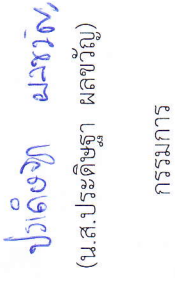 ประดิษฐา ผลขวัญ
(น.ส.ประดิษฐา ผลขวัญ)
กรรมการ